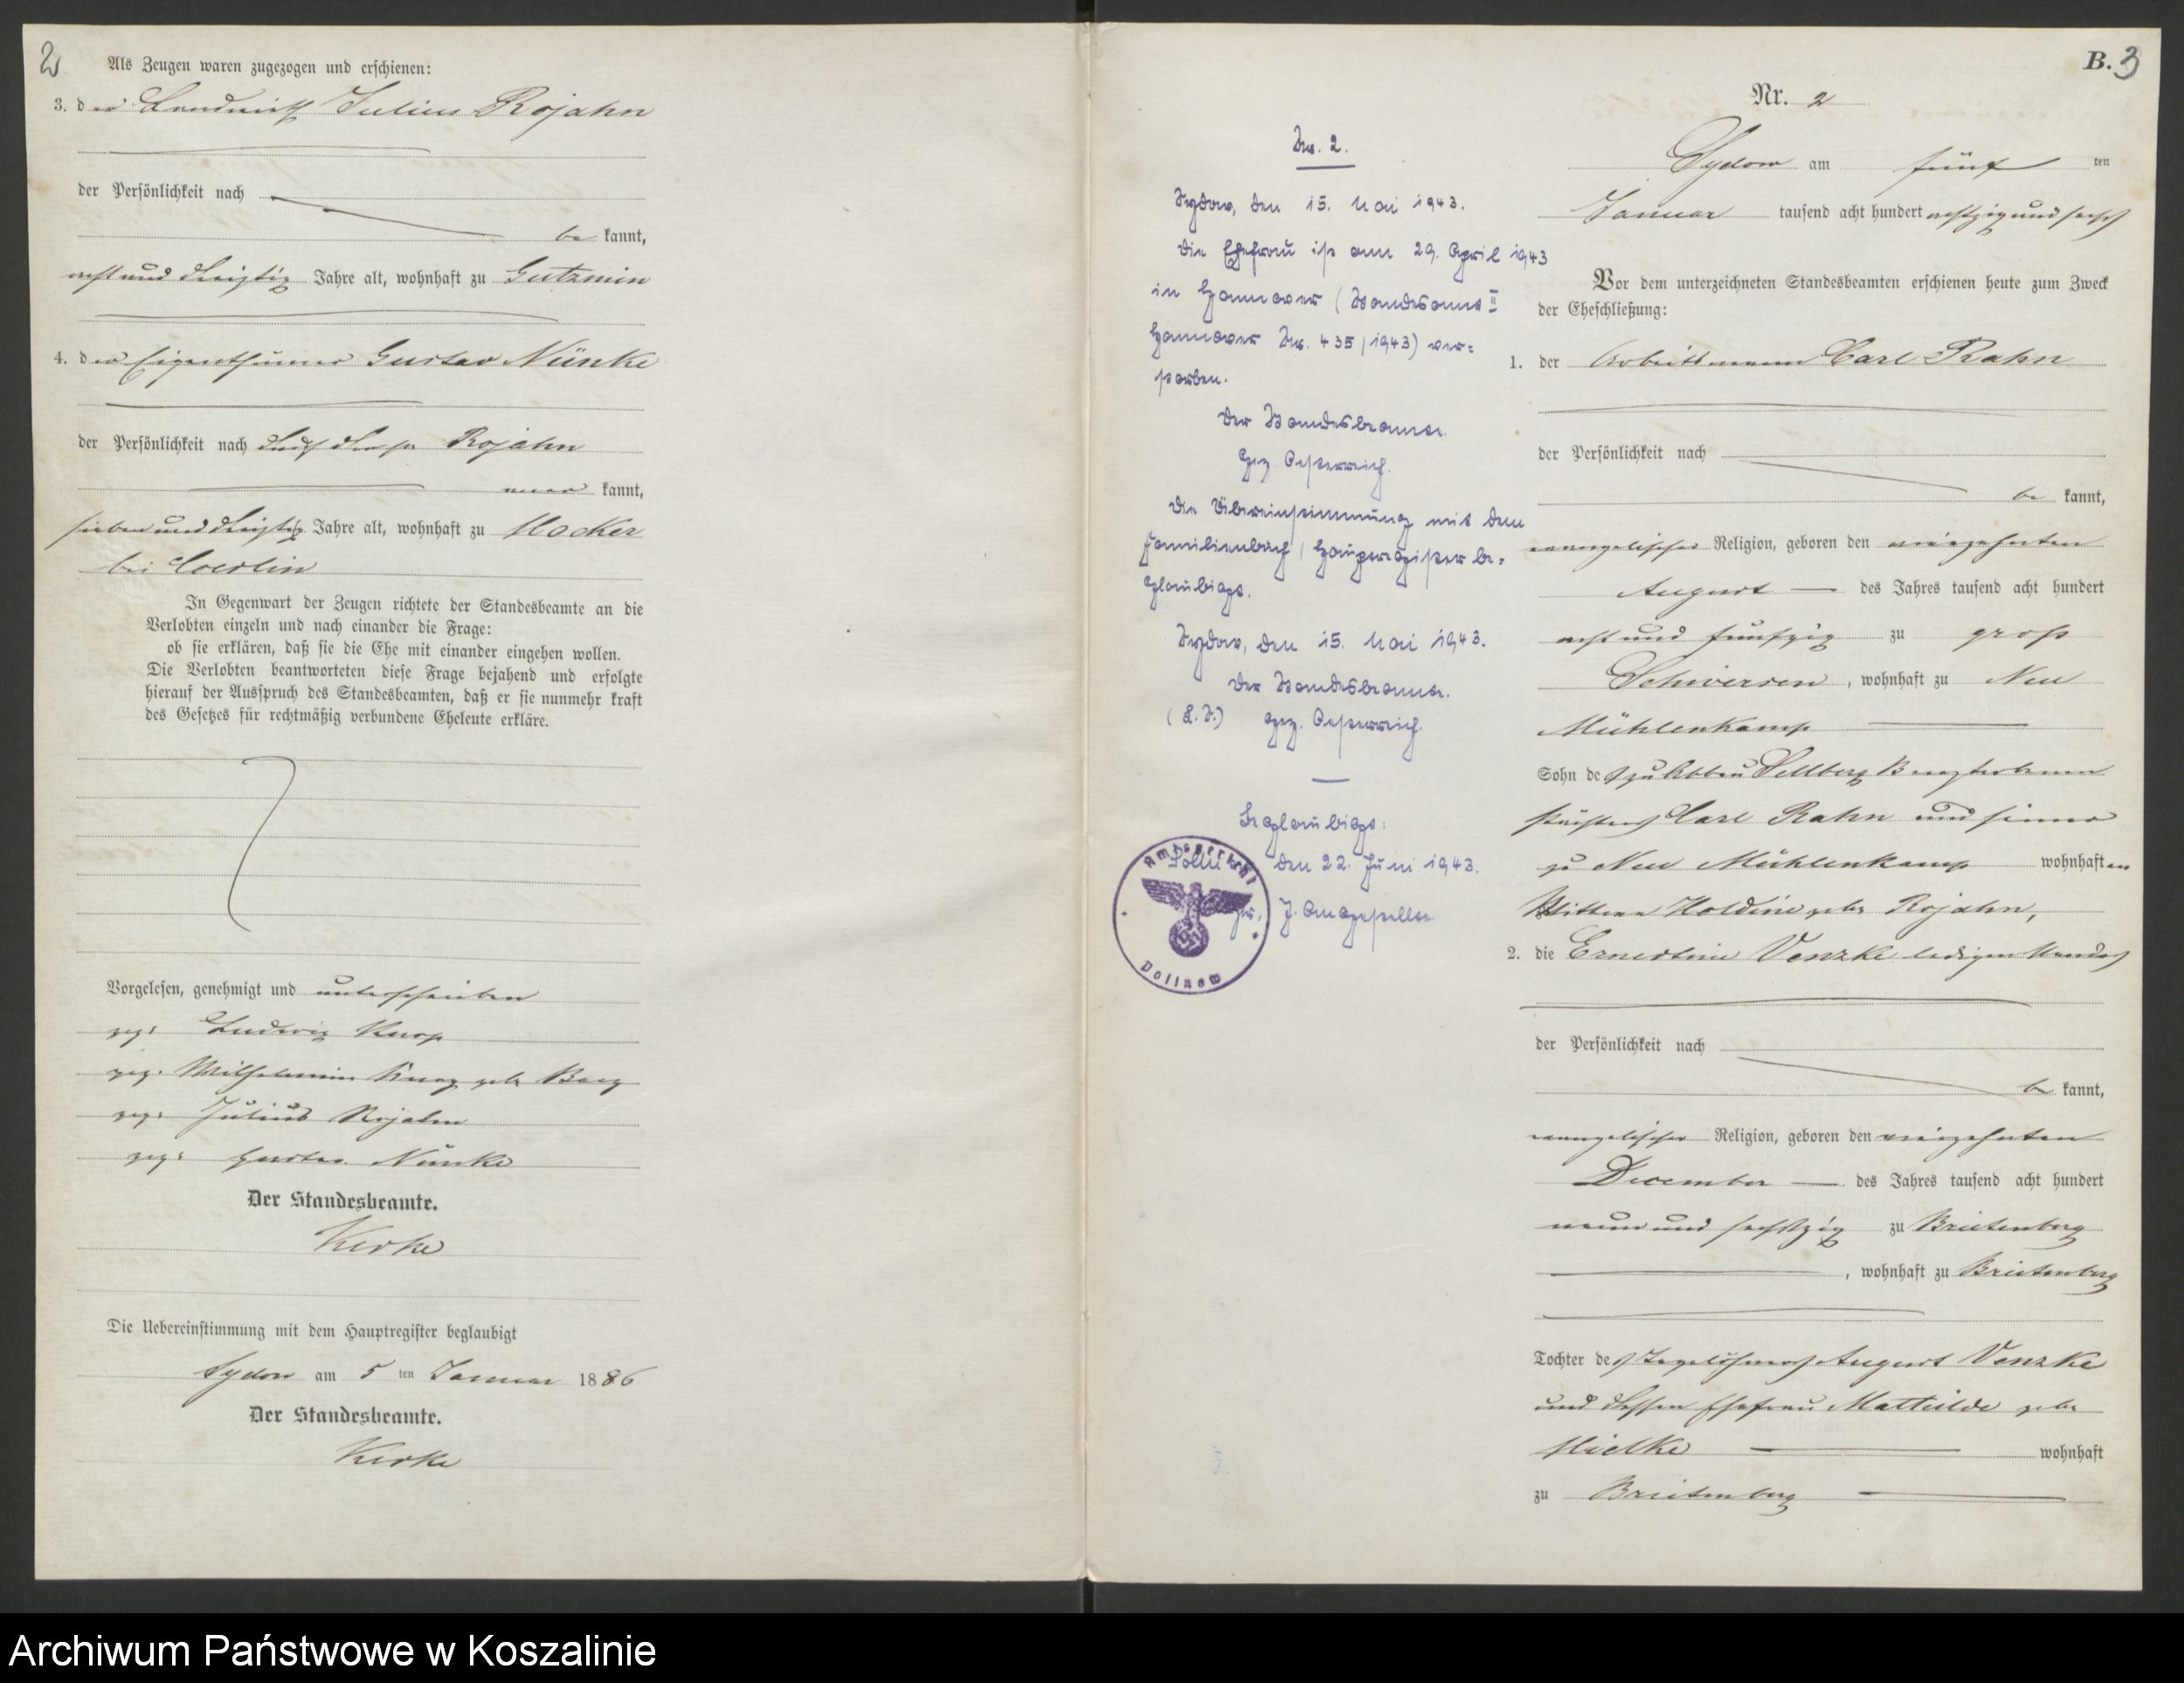 2
Als Zeugen waren zugezogen und erschienen:
3. der Landwirth Julius Rojahn
der Persönlichkeit nach
be kannt,
acht und dreißig Jahre alt, wohnhaft zu Gutzmin
4. der Eigenthümer Gustav Nünke
der Persönlichkeit nach durch Rojahn
kannt,
sieben und dreißig Jahre alt, wohnhaft zu Mocker
bei Coerlin
In Gegenwart der Zeugen richtete der Standesbeamte an die
Verlobten einzeln und nach einander die Frage:
ob sie erklären, daß sie die Ehe mit einander eingehen wollen.
Die Verlobten beantworteten diese Frage bejahend und erfolgte
hierauf der Ausspruch des Standesbeamten, daß er sie nunmehr kraft
des Gesetzes für rechtmäßig verbundene Eheleute erkläre.
Vorgelesen, genehmigt und unterschrieben
gez. Ludwig
gez. Wilhelmine geb.
gez. Julius Rojahn
gez. Gustav Nünke
Der Standesbeamte.
Kerke
Die Uebereinstimmung mit dem Hauptregister beglaubigt
Sydow am 5 ten Januar 1886
Der Standesbeamte.
Kerke
Nr. 2.
Sydow, den 15. Mai 1943.
Die Ehefrau ist am 29. April 1943
in Hannover (Standesamt II
Hannover Nr. 435/1943) ver=
storben.
Der Standesbeamte.
Gez Oesterreich.
Die Übereinstimmung mit dem
Familienbuch / Hauptregister be=
glaubigt.
Sydow, den 15. Mai 1943.
Der Standesbeamte.
(L.S.) gez. Oesterreich.
Beglaubigt:
den 22. Juni 1943.
J. Angestellter
Amtsgericht
Pollnow
B. 3
Nr. 2
Sydow am fünf ten
Januar tausend acht hundert achtzig und sechs
Vor dem unterzeichneten Standesbeamten erschienen heute zum Zweck
der Eheschließung:
1. der Arbeitsmann Carl Rahn
der Persönlichkeit nach
be kannt,
evangelischer Religion, geboren den vierzehnten
August des Jahres tausend acht hundert
acht und fünfzig zu groß
Schwirsen, wohnhaft zu Neu
Mühlenkamp
Sohn des zu verstorbenen
Carl Rahn und seiner
zu Neu Mühlenkamp wohnhaften
Wittwe geb. Rojahn,
2. die Ernestine Venzke ledigen Standes
der Persönlichkeit nach
be kannt,
evangelischer Religion, geboren den vierzehnten
December des Jahres tausend acht hundert
neun und sechszig zu Breitenberg
, wohnhaft zu Breitenberg
Tochter des Tagelöhners August Venzke
und dessen Ehefrau Mathilde geb.
Mielke wohnhaft
zu Breitenberg
Archiwum Państwowe w Koszalinie